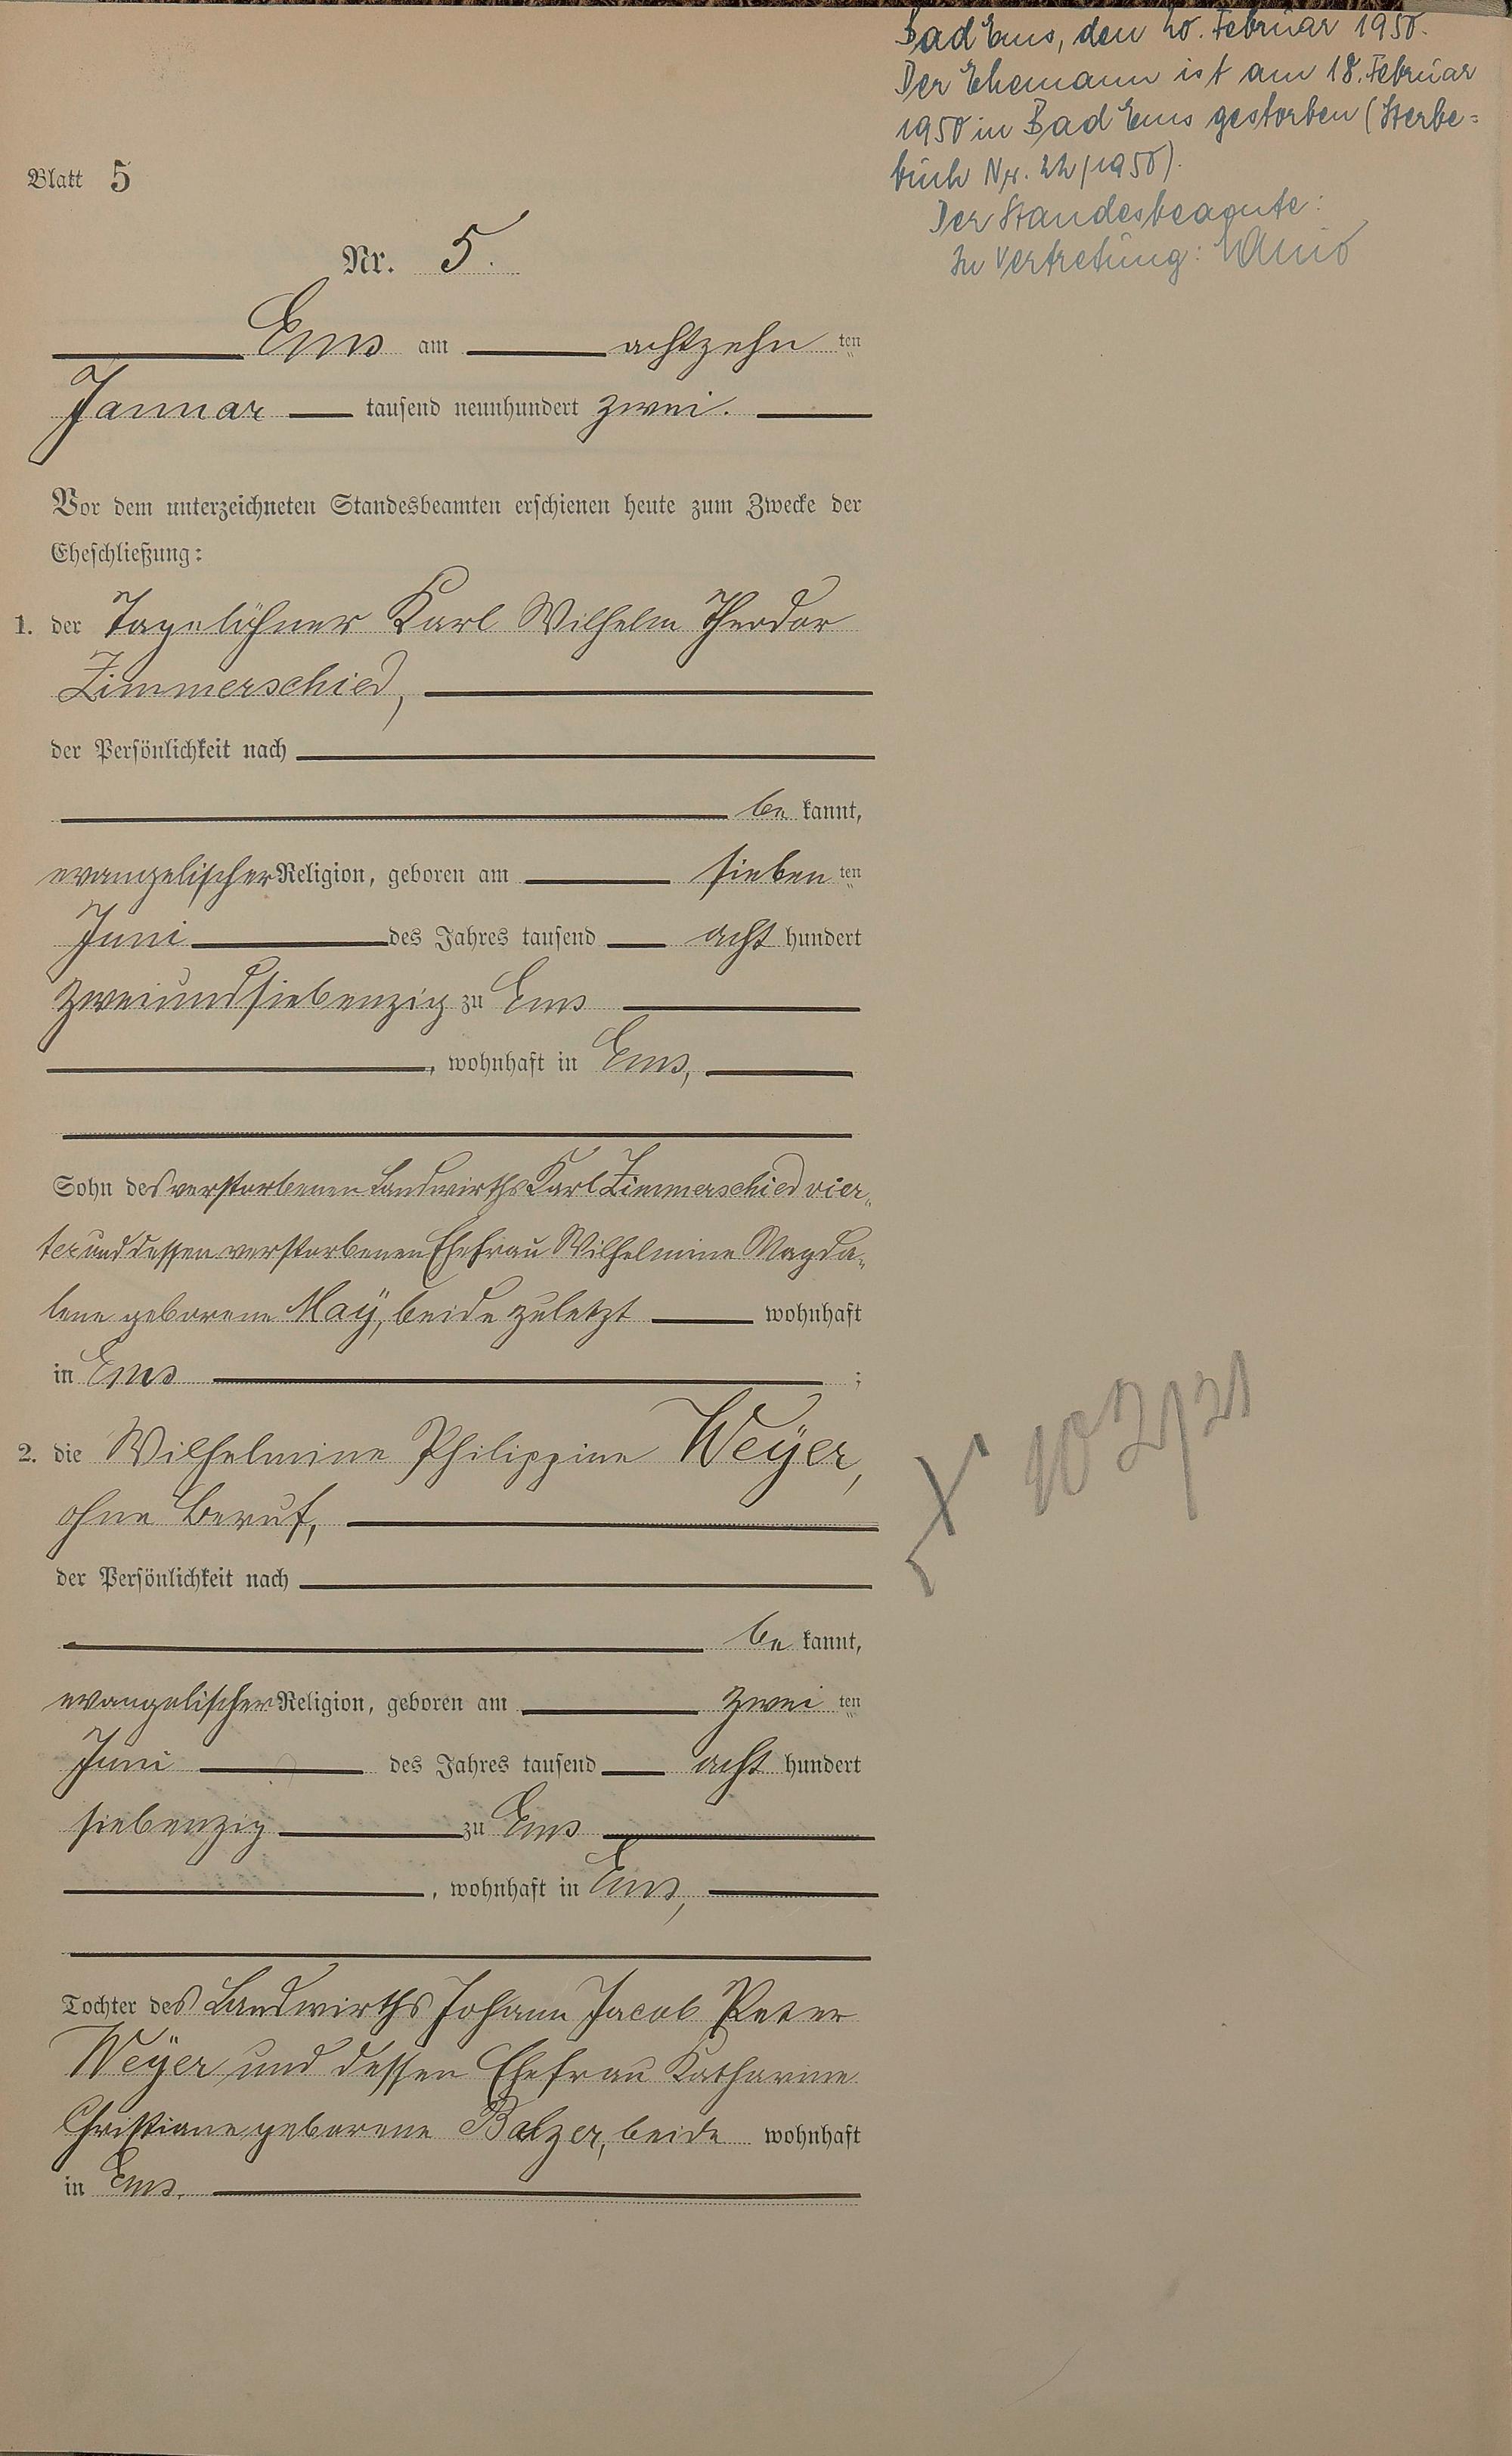 Bad Ems, den 20. Februar 1950.
Der Ehemann ist am 18. Februar
1950 in Bad Ems gestorben (Sterbe=
buch Nr. 22/1950).
Der Standesbeamte:
In Vertretung:
Blatt 5
Nr. 5.
Ems am achtzehn ten
Januar tausend neunhundert zwei.
Vor dem unterzeichneten Standesbeamten erschienen heute zum Zwecke der
Eheschließung:
1. der Tagelöhner Karl Wilhelm Theodor
Zimmerschied,
der Persönlichkeit nach
be kannt,
evangelischer Religion, geboren am sieben ten
Juni des Jahres tausend acht hundert
zweiundsiebenzig zu Ems
, wohnhaft in Ems,
Sohn des verstorbenen Landwirths Karl Zimmerschied vier„
ter und dessen verstorbenen Ehefrau Wilhelmine Magda„
lene geborene Maÿ, beide zuletzt wohnhaft
in Ems ;
2. die Wilhelmine Philippine Weÿer,
ohne Beruf,
der Persönlichkeit nach
be kannt,
evangelischer Religion, geboren am zwei ten
Juni des Jahres tausend acht hundert
siebenzig zu Ems
, wohnhaft in Ems,
Tochter des Landwirths Johann Jacob Peter
Weÿer und dessen Ehefrau Katharine
Christiane geborene Balzer, beide wohnhaft
in Ems.